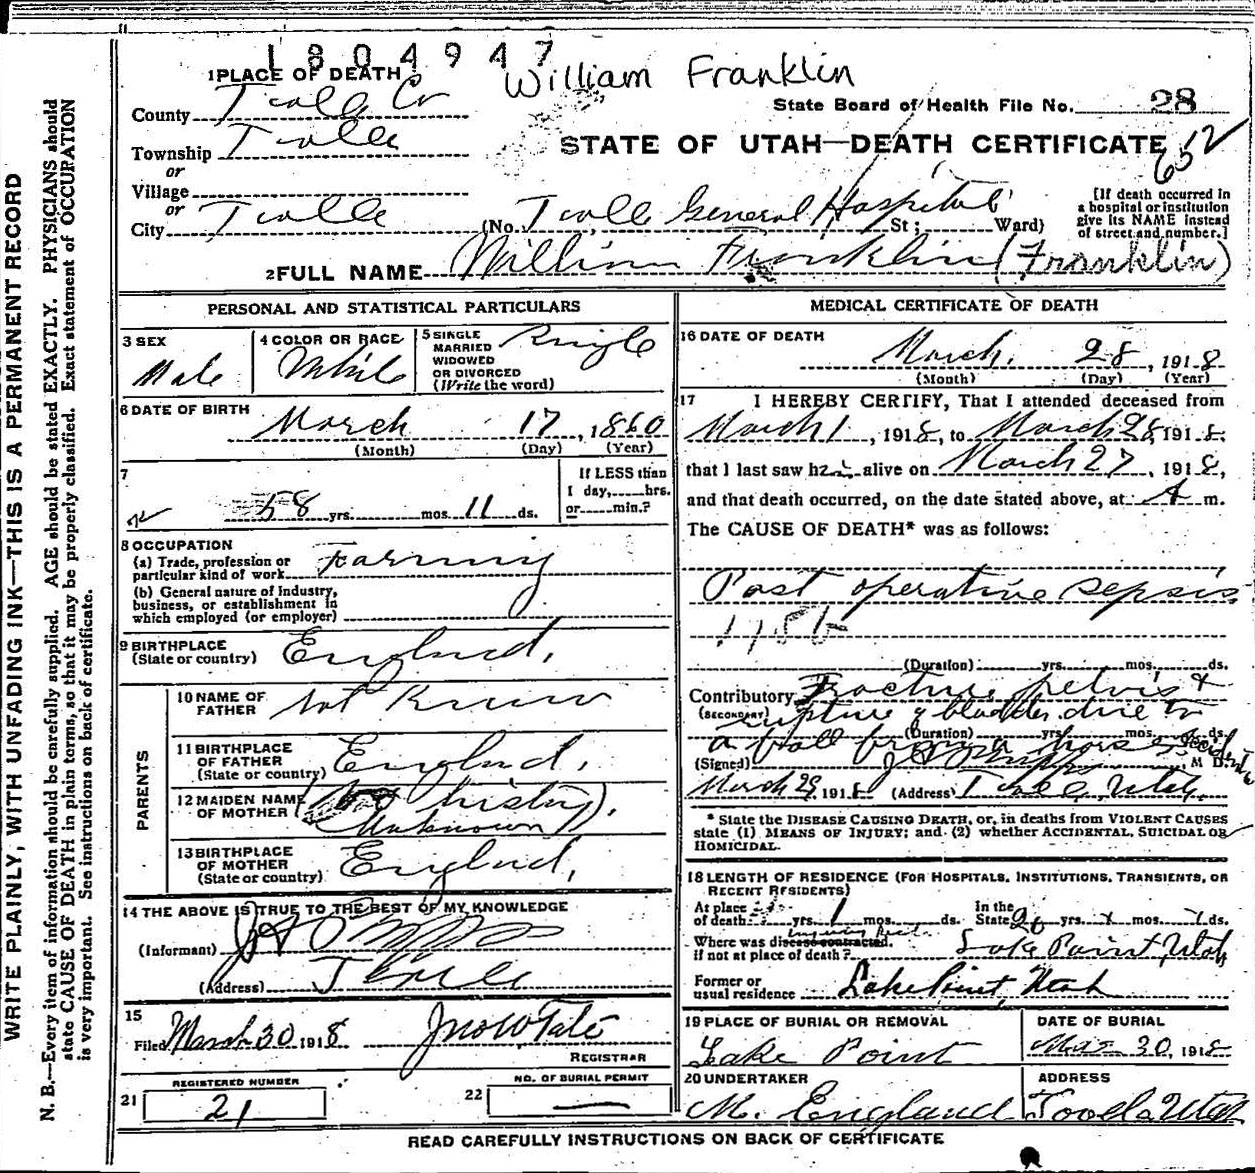 1804947
William Franklin
1 PLACE OF DEATH
County Tooele Co
State Board of Health File No. 28
Township Tooele
STATE OF UTAH—DEATH CERTIFICATE
652
or
Village
or
City Tooele (No. Tooele General Hospital St; Ward)
[If death occurred in
a hospital or institution
give its NAME instead
of street and number.]
2 FULL NAME William Franklin (Franklin)
PERSONAL AND STATISTICAL PARTICULARS
3 SEX
Male
4 COLOR OR RACE
White
5 SINGLE
MARRIED
WIDOWED
OR DIVORCED
(Write the word)
Single
6 DATE OF BIRTH
March 17, 1860
(Month) (Day) (Year)
7
58 yrs. mos. 11 ds.
If LESS than
1 day, hrs.
or min.?
8 OCCUPATION
(a) Trade, profession or
particular kind of work Farming
(b) General nature of industry,
business, or establishment in
which employed (or employer)
9 BIRTHPLACE
(State or country) England,
PARENTS
10 NAME OF
FATHER Not Known
11 BIRTHPLACE
OF FATHER
(State or country) England,
12 MAIDEN NAME
OF MOTHER history).
Unknown
13 BIRTHPLACE
OF MOTHER
(State or country) England,
14 THE ABOVE IS TRUE TO THE BEST OF MY KNOWLEDGE
(Informant)
(Address) Tooele
15
Filed March 30 1918 Jno W Tate
REGISTRAR
REGISTERED NUMBER
21 21
NO. OF BURIAL PERMIT
22 —
MEDICAL CERTIFICATE OF DEATH
16 DATE OF DEATH
March. 28, 1918
(Month) (Day) (Year)
17 I HEREBY CERTIFY, That I attended deceased from
March 1, 1918, to March 28, 1918.
that I last saw him alive on March 27, 1918,
and that death occurred, on the date stated above, at A m.
The CAUSE OF DEATH* was as follows:
Post operative sepsis
(Duration) yrs. mos. ds.
Contributory Fracture pelvis &
(SECONDARY) rupture of bladder due to
(Duration) yrs. mos. ds.
a fall from a horse Accident
(Signed) M D.
March 29, 1918 (Address) Tooele, Utah.
* State the DISEASE CAUSING DEATH, or, in deaths from VIOLENT CAUSES
state (1) MEANS OF INJURY; and (2) whether ACCIDENTAL, SUICIDAL OR
HOMICIDAL.
18 LENGTH OF RESIDENCE (FOR HOSPITALS, INSTITUTIONS, TRANSIENTS, OR
RECENT RESIDENTS)
At place
of death yrs. 1 mos. ds.
In the
State 26 yrs. mos. ds.
Where was disease contracted.
if not at place of death? Lake Point, Utah
Former or
usual residence Lake Point, Utah
19 PLACE OF BURIAL OR REMOVAL
Lake Point
DATE OF BURIAL
Mar 30, 1918
20 UNDERTAKER
M. England
ADDRESS
Tooele Utah
READ CAREFULLY INSTRUCTIONS ON BACK OF CERTIFICATE
WRITE PLAINLY, WITH UNFADING INK—THIS IS A PERMANENT RECORD
N. B.—Every item of information should be carefully supplied. AGE should be stated EXACTLY. PHYSICIANS should
state CAUSE OF DEATH in plain terms, so that it may be properly classified. Exact statement of OCCUPATION
is very important. See instructions on back of certificate.